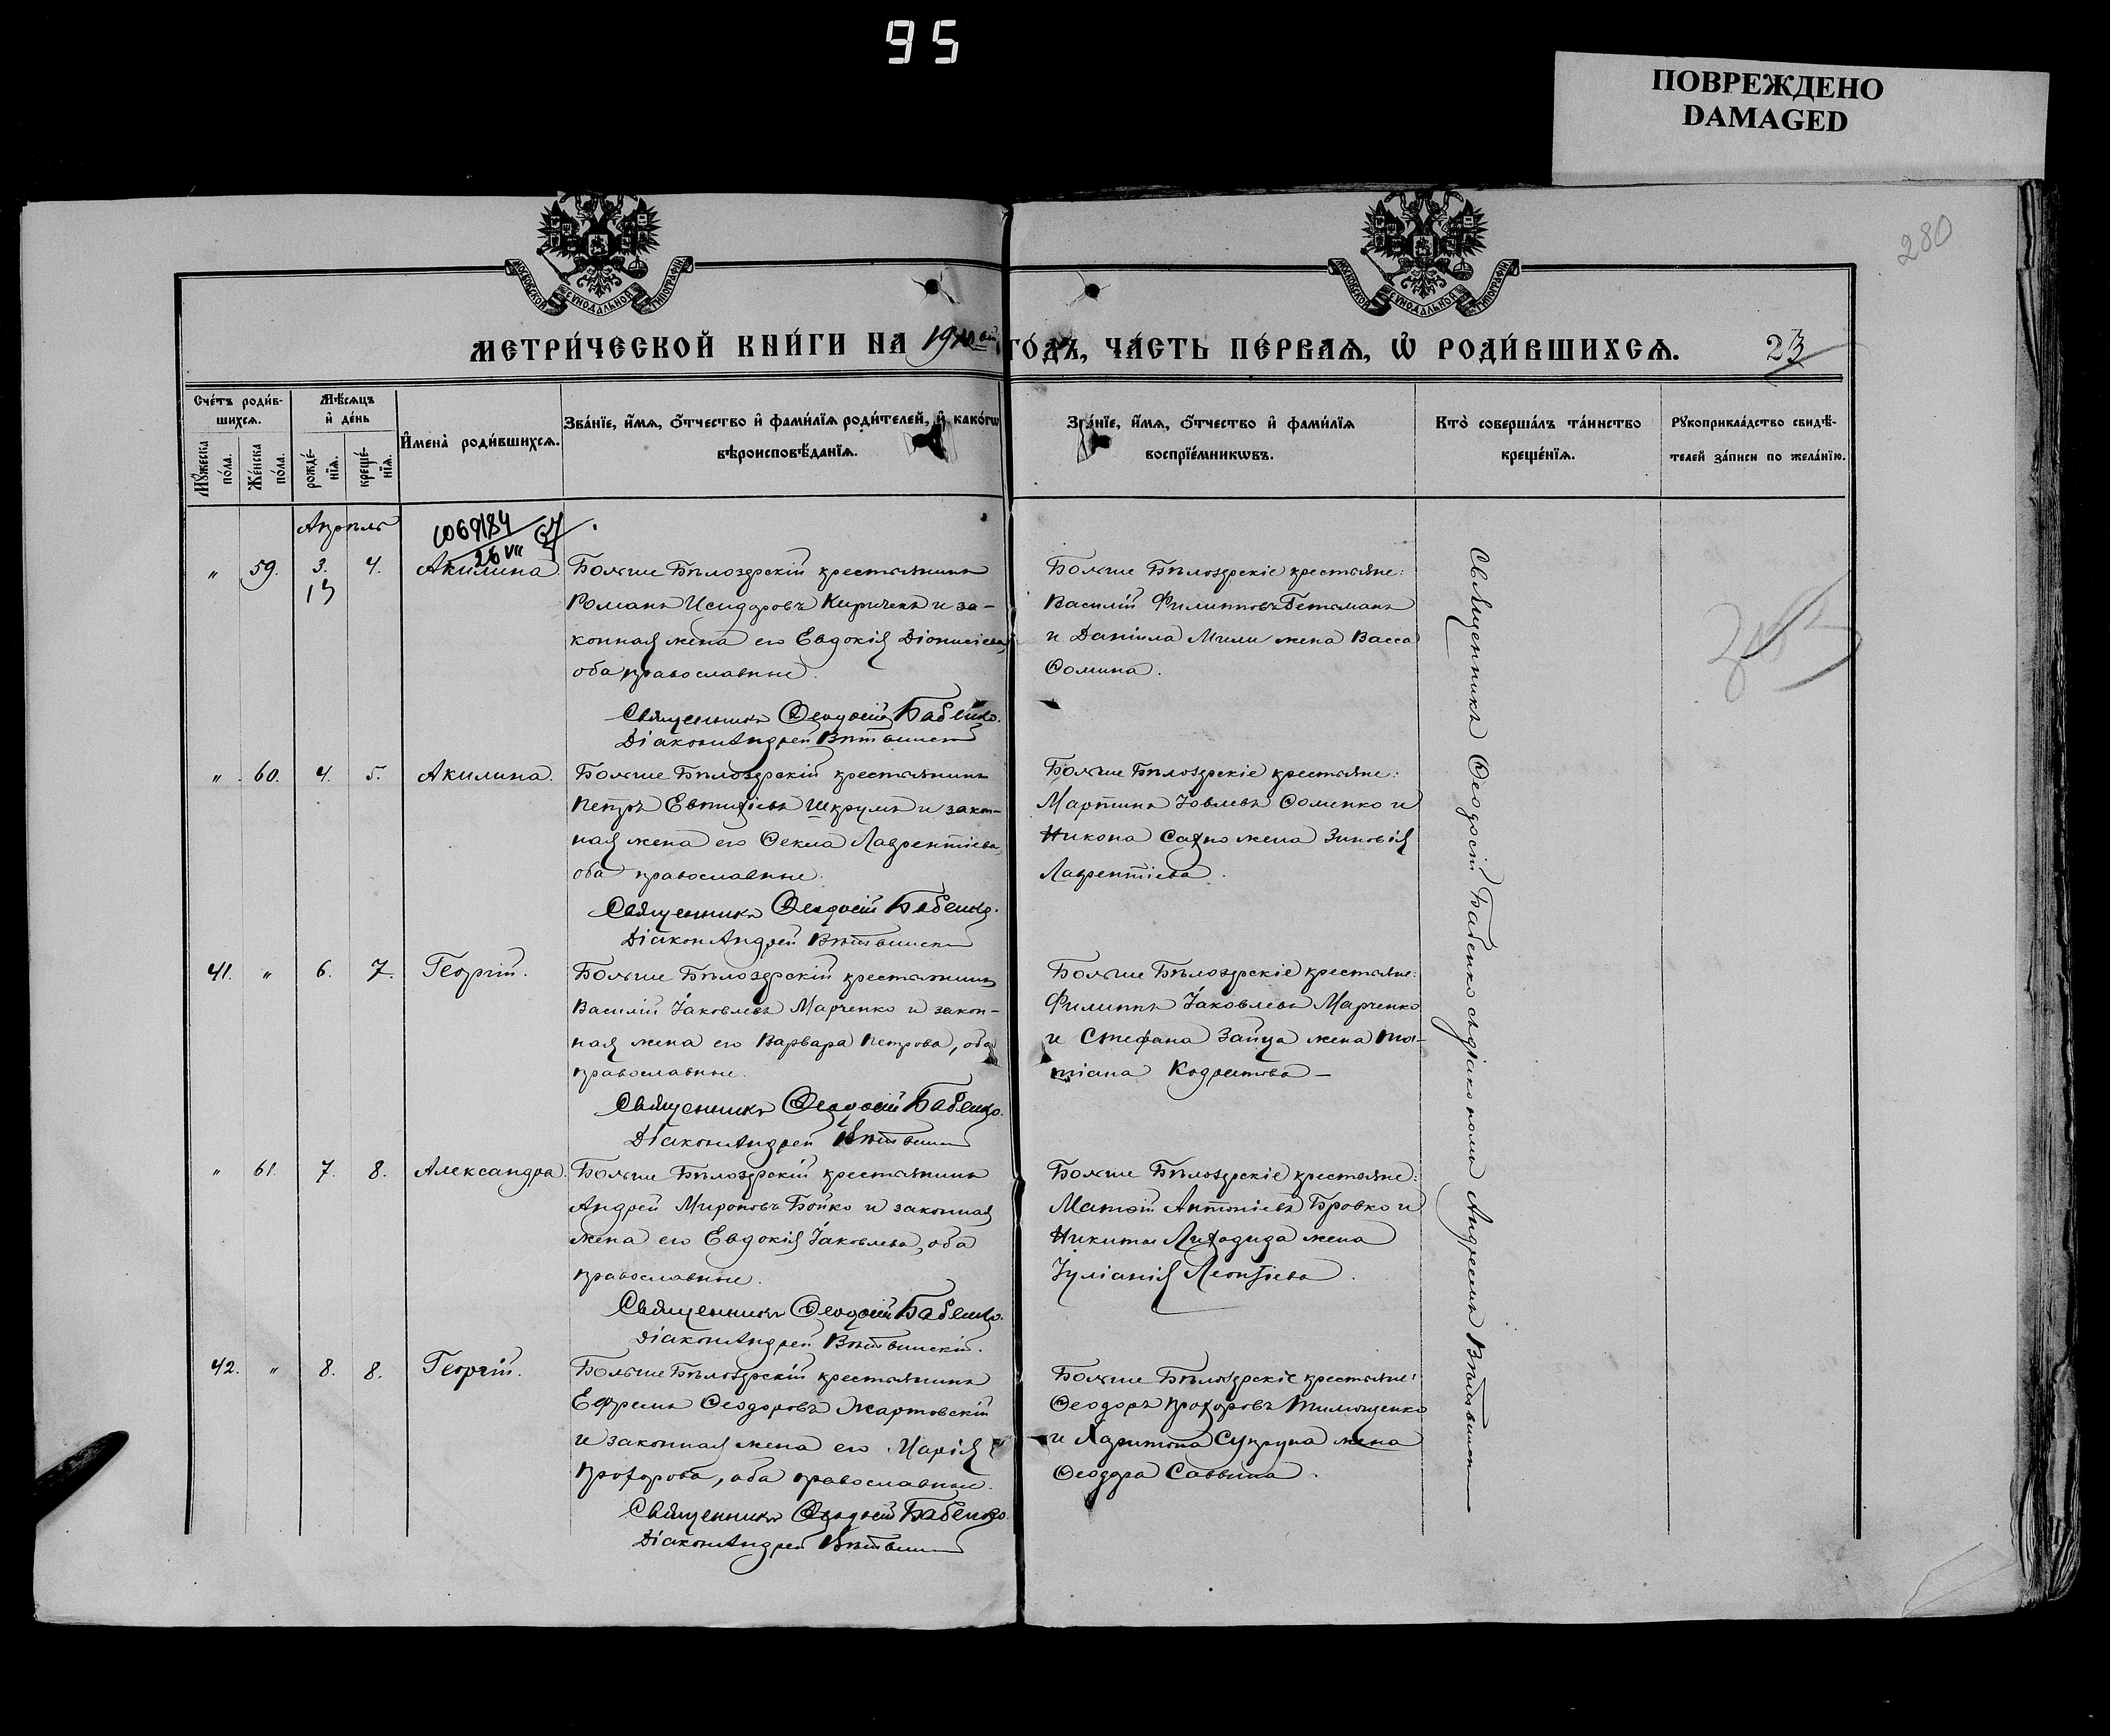 95
ПОВРЕЖДЕНО
DAMAGED
280
МОСКОВСКОЙ СѴНОДАЛЬНОЙ ТИПОГРАФІИ
МОСКОВСКОЙ СѴНОДАЛЬНОЙ ТИПОГРАФІИ
МЕТРИ́ЧЕСКОЙ КНИ́ГИ НА 1910ый ГО́ДЪ, ЧА́СТЬ ПЕ́РВАѦ, Ѡ РОДИ́ВШИХСѦ. 23
Сче́тъ роди́в-
шихсѧ.
Мꙋ́жеска по́ла.
Же́нска по́ла.
Мѣ́сяцъ
и де́нь
рожде́-нїѧ.
креще́-нїѧ.
Имена̀ роди́вшихсѧ.
Зва́нїе, и́мѧ, ѻ́тчество и фами́лїѧ роди́телей, и како́гѡ
вѣроисповѣ́данїѧ.
Зва́нїе, и́мѧ, ѻ́тчество и фами́лїѧ
воспрїе́мникѡвъ.
Кто̀ соверша́лъ та́инство
креще́нїѧ.
Рꙋкоприкла́дство свидѣ́-
телей за́писи по жела́нїю.
Апрѣль
26 VII
" 59. 3. 4. Акилина
13
Больше Бѣлозерскій крестьянинъ
Романъ Исидоровъ Кириченъ и за-
конная жена его Евдокія Діонисіева,
оба православные.
Священникъ Ѳеодосій Бабенко.
Діаконъ Андрей
Больше Бѣлозерскіе крестьяне:
Василій Филипповъ Гетманъ
и Даніила Мили жена Васса
Ѳомина.
" 60. 4. 5. Акилина.
Больше Бѣлозерскій крестьянинъ
Петръ Евтихіевъ Шкрумъ и закон-
ная жена его Ѳекла Лаврентіева,
оба православные.
Священникъ Ѳеодосій Бабенко.
Діаконъ Андрей
Больше Бѣлозерскіе крестьяне:
Мартинъ Іовлевъ Ѳоменко и
Никона Сахно жена Зиновія
Лаврентіева.
41. " 6. 7. Георгій.
Больше Бѣлозерскій крестьянинъ
Василій Іаковлевъ Марченко и закон-
ная жена его Варвара Петрова, оба
православные.
Священникъ Ѳеодосій Бабенко.
Діаконъ Андрей
Больше Бѣлозерскіе крестьяне:
Филиппъ Іаковлевъ Марченко
и Стефана Зайца жена Та-
тіана Кодратова –
" 61. 7. 8. Александра.
Больше Бѣлозерскій крестьянинъ
Андрей Мироновъ Бойко и законная
жена его Евдокія Іаковлева, оба
православные.
Священникъ Ѳеодосій Бабенко.
Діаконъ Андрей
Больше Бѣлозерскіе крестьяне:
Матѳій Антоніевъ Бровко и
Никиты Лиходида жена
Іуліанія Леонтіева.
42. " 8. 8. Георгій.
Больше Бѣлозерскій крестьянинъ
Ефремъ Ѳеодоровъ Жартовскій
и законная жена его Марія
Прохорова, оба православные.
Священникъ Ѳеодосій Бабенко.
Діаконъ Андрей
Больше Бѣлозерскіе крестьяне:
Ѳеодоръ Прохоровъ Тимощенко
и Харитона Супруна жена
Ѳеодора Саввина.
Священникъ Ѳеодосій Бабенко съ діакономъ Андреемъ